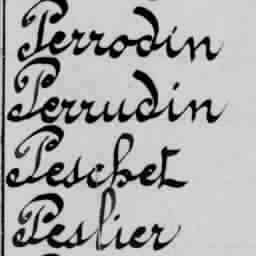 Perrodin
Perrudin
Peschet
Peslier